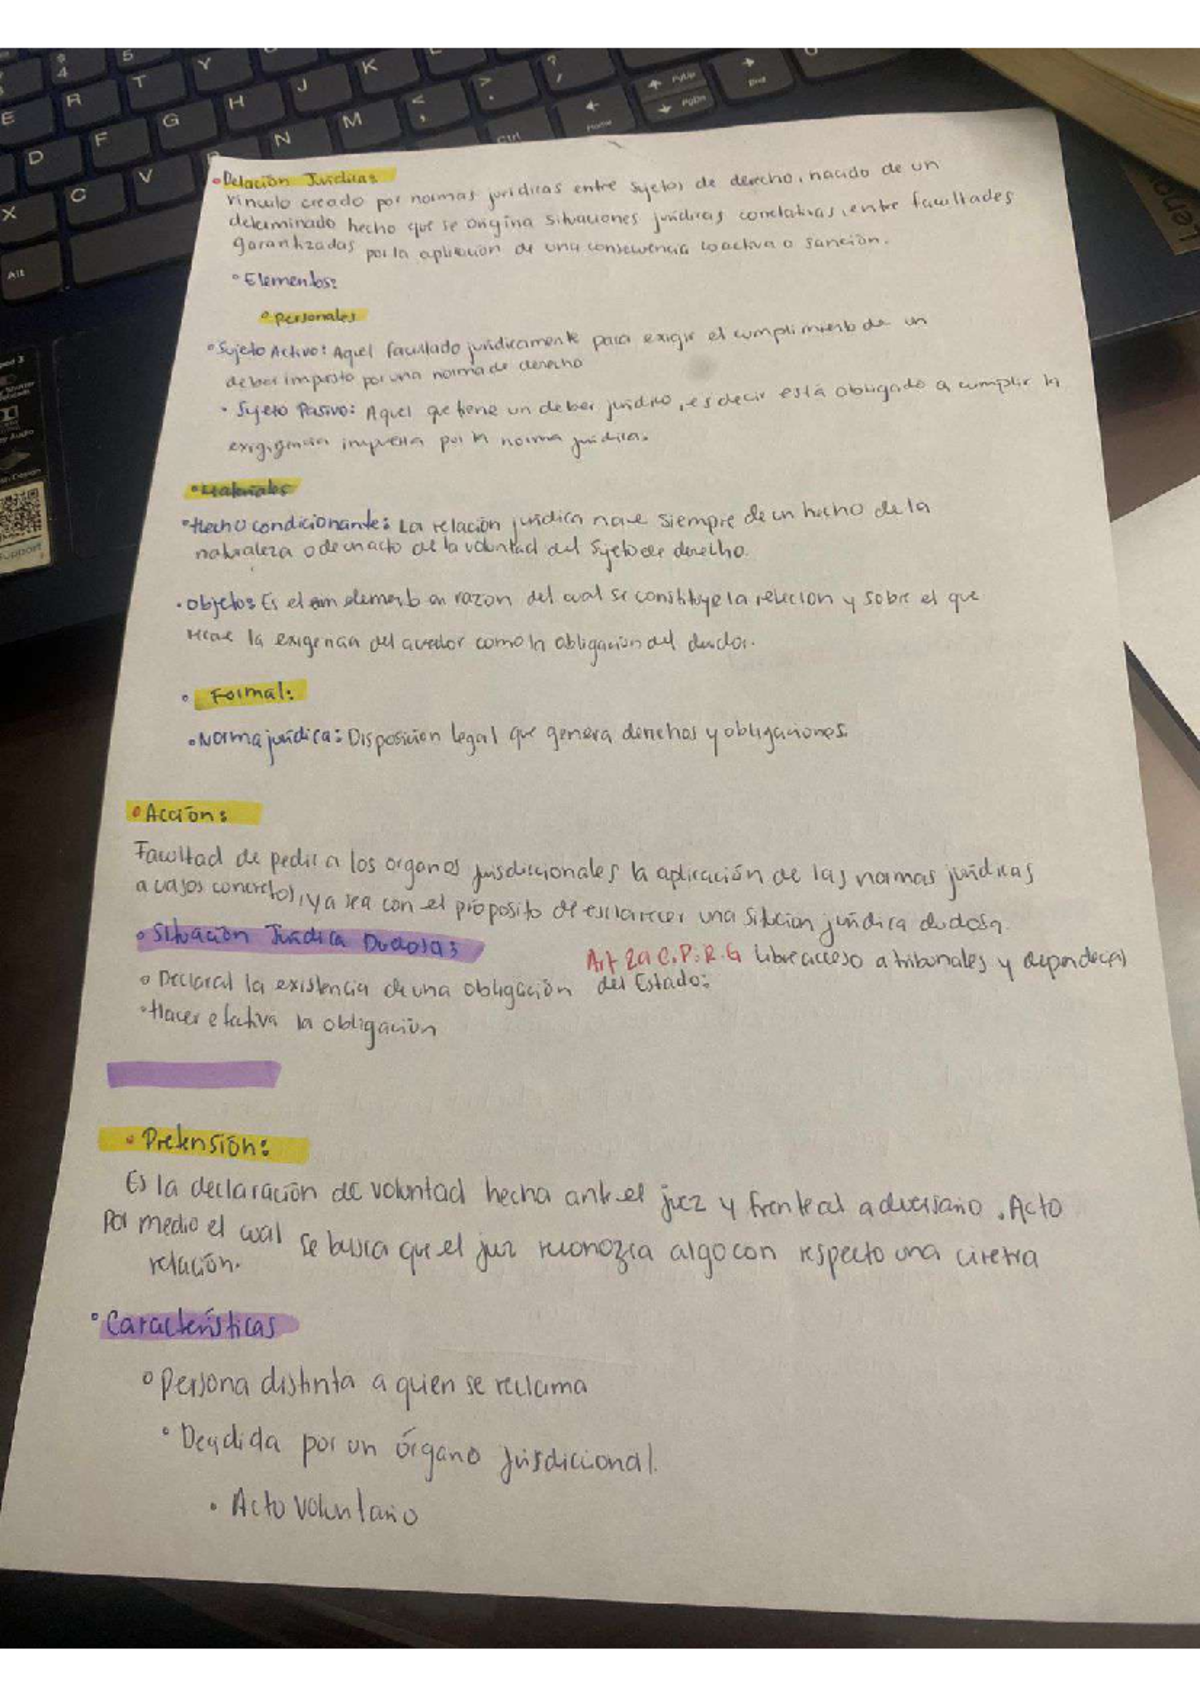 Relación Jurídica:
vínculo creado por normas jurídicas entre sujetos de derecho, nacido de un
determinado hecho que se origina situaciones jurídicas correlativas, entre facultades
garantizadas por la aplicación de una consecuencia coactiva o sanción.
Elementos:
Personales
Sujeto Activo: Aquel facultado jurídicamente para exigir el cumplimiento de un
deber impuesto por una norma de derecho
Sujeto Pasivo: Aquel que tiene un deber jurídico, es decir está obligado a cumplir la
impuesta por la norma jurídica.
Materiales
Hecho condicionante: La relación jurídica nace siempre de un hecho de la
naturaleza o de un acto de la voluntad del sujeto de derecho.
Objeto: Es el elemento en razon del cual se constituye la relación y sobre el que
recae la exigencia del acreedor como la obligación del deudor.
Formal:
Norma jurídica: Disposición legal que genera derechos y obligaciones.
Acción:
Facultad de pedir a los organos jurisdiccionales la aplicación de las normas jurídicas
a casos concretos, ya sea con el proposito de esclarecer una jurídica dudosa.
Situación Jurídica Dudosa:
Art 29 C.P.R.G libre acceso a tribunales y
Declarar la existencia de una obligación del Estado:
Hacer efectiva la obligación
Pretensión:
Es la declaración de voluntad hecha ante el juez y frente al adversario. Acto
Por medio el cual se busca que el juez reconozca algo con respecto una cierta
relación.
Características
Persona distinta a quien se reclama
Decidida por un órgano jurisdiccional.
Acto voluntario
E
4
R
5
T
Y
J
K
D
F
G
H
N
M
X
C
V
Alt
Ctrl
Home
PgUp
PgDn
End
Support
Leno